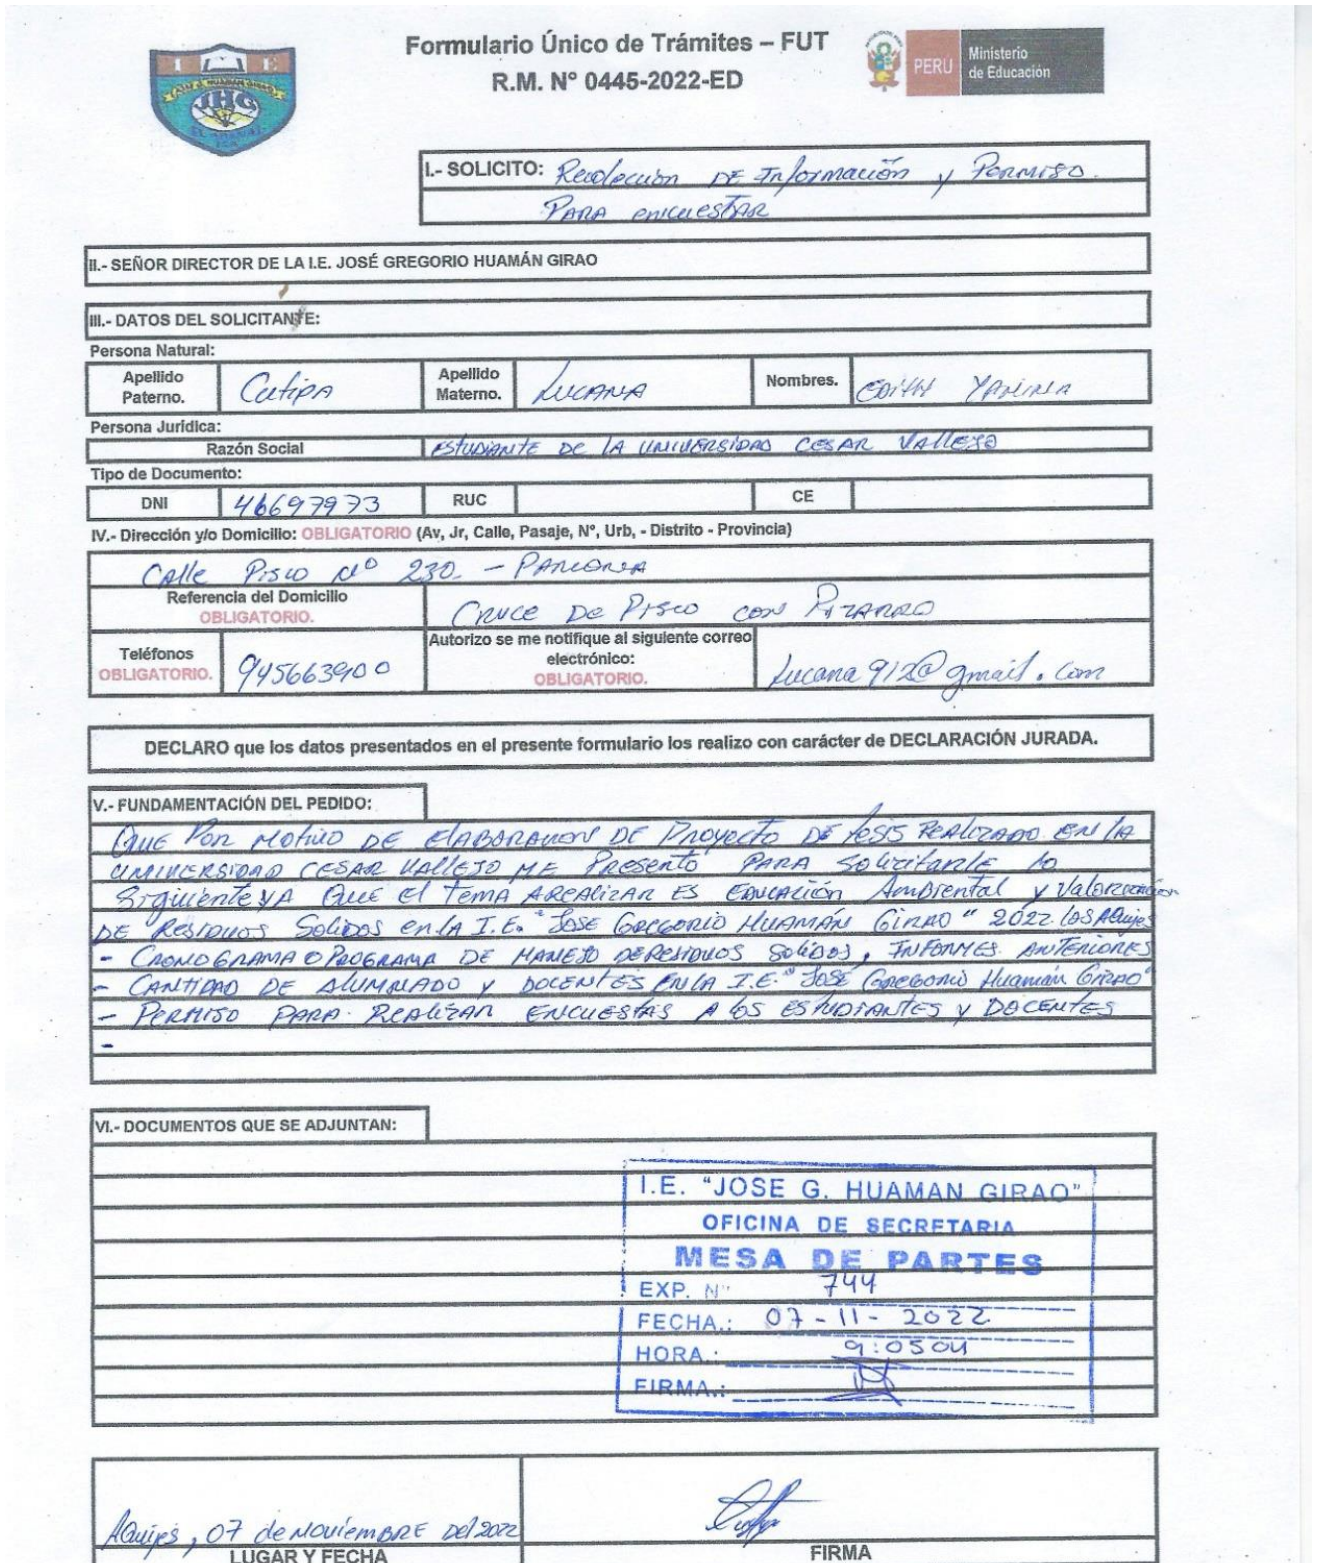 Formulario Único de Trámites – FUT
R.M. N° 0445-2022-ED
I E
JHG
PERÚ
Ministerio
de Educación
I.- SOLICITO: Recolección DE Información y Permiso.
PARA encuestar
II.- SEÑOR DIRECTOR DE LA I.E. JOSÉ GREGORIO HUAMÁN GIRAO
III.- DATOS DEL SOLICITANTE:
Persona Natural:
Apellido Paterno. Cutipa Apellido Materno. Lucana Nombres. Edith Yanina
Persona Jurídica:
Razón Social ESTUDIANTE DE LA UNIVERSIDAD CESAR VALLEJO
Tipo de Documento:
DNI 46697973 RUC CE
IV.- Dirección y/o Domicilio: OBLIGATORIO (Av, Jr, Calle, Pasaje, N°, Urb, - Distrito - Provincia)
Calle Pisco N° 230 - PARCONA
Referencia del Domicilio OBLIGATORIO. Cruce De Pisco con Pizarro
Teléfonos OBLIGATORIO. 945663900 Autorizo se me notifique al siguiente correo electrónico: OBLIGATORIO. Lucana912@gmail.com
DECLARO que los datos presentados en el presente formulario los realizo con carácter de DECLARACIÓN JURADA.
V.- FUNDAMENTACIÓN DEL PEDIDO:
QUE POR MOTIVO DE ELABORACION DE Proyecto DE tesis REALIZADO EN LA
UNIVERSIDAD CESAR VALLEJO ME Presento PARA Solicitarle lo
Siguiente YA QUE el Tema AREALIZAR ES EDUCACIÓN Ambiental y Valorización
DE Residuos Solidos en LA I.E. "JOSE GREGORIO HUAMÁN GIRAO" 2022 los Aquijes
- CRONOGRAMA O PROGRAMA DE MANEJO DE RESIDUOS SOLIDOS, INFORMES ANTERIORES
- CANTIDAD DE ALUMNADO y DOCENTES EN LA I.E. "JOSÉ GREGORIO Huamán GIRAO"
- PERMISO PARA REALIZAR ENCUESTAS A LOS ESTUDIANTES y DOCENTES
-
VI.- DOCUMENTOS QUE SE ADJUNTAN:
I.E. "JOSE G. HUAMAN GIRAO"
OFICINA DE SECRETARIA
MESA DE PARTES
EXP. N° 744
FECHA.: 07-11-2022
HORA.: 9:05
FIRMA.:
Aquijes, 07 de Noviembre Del 2022
LUGAR Y FECHA FIRMA